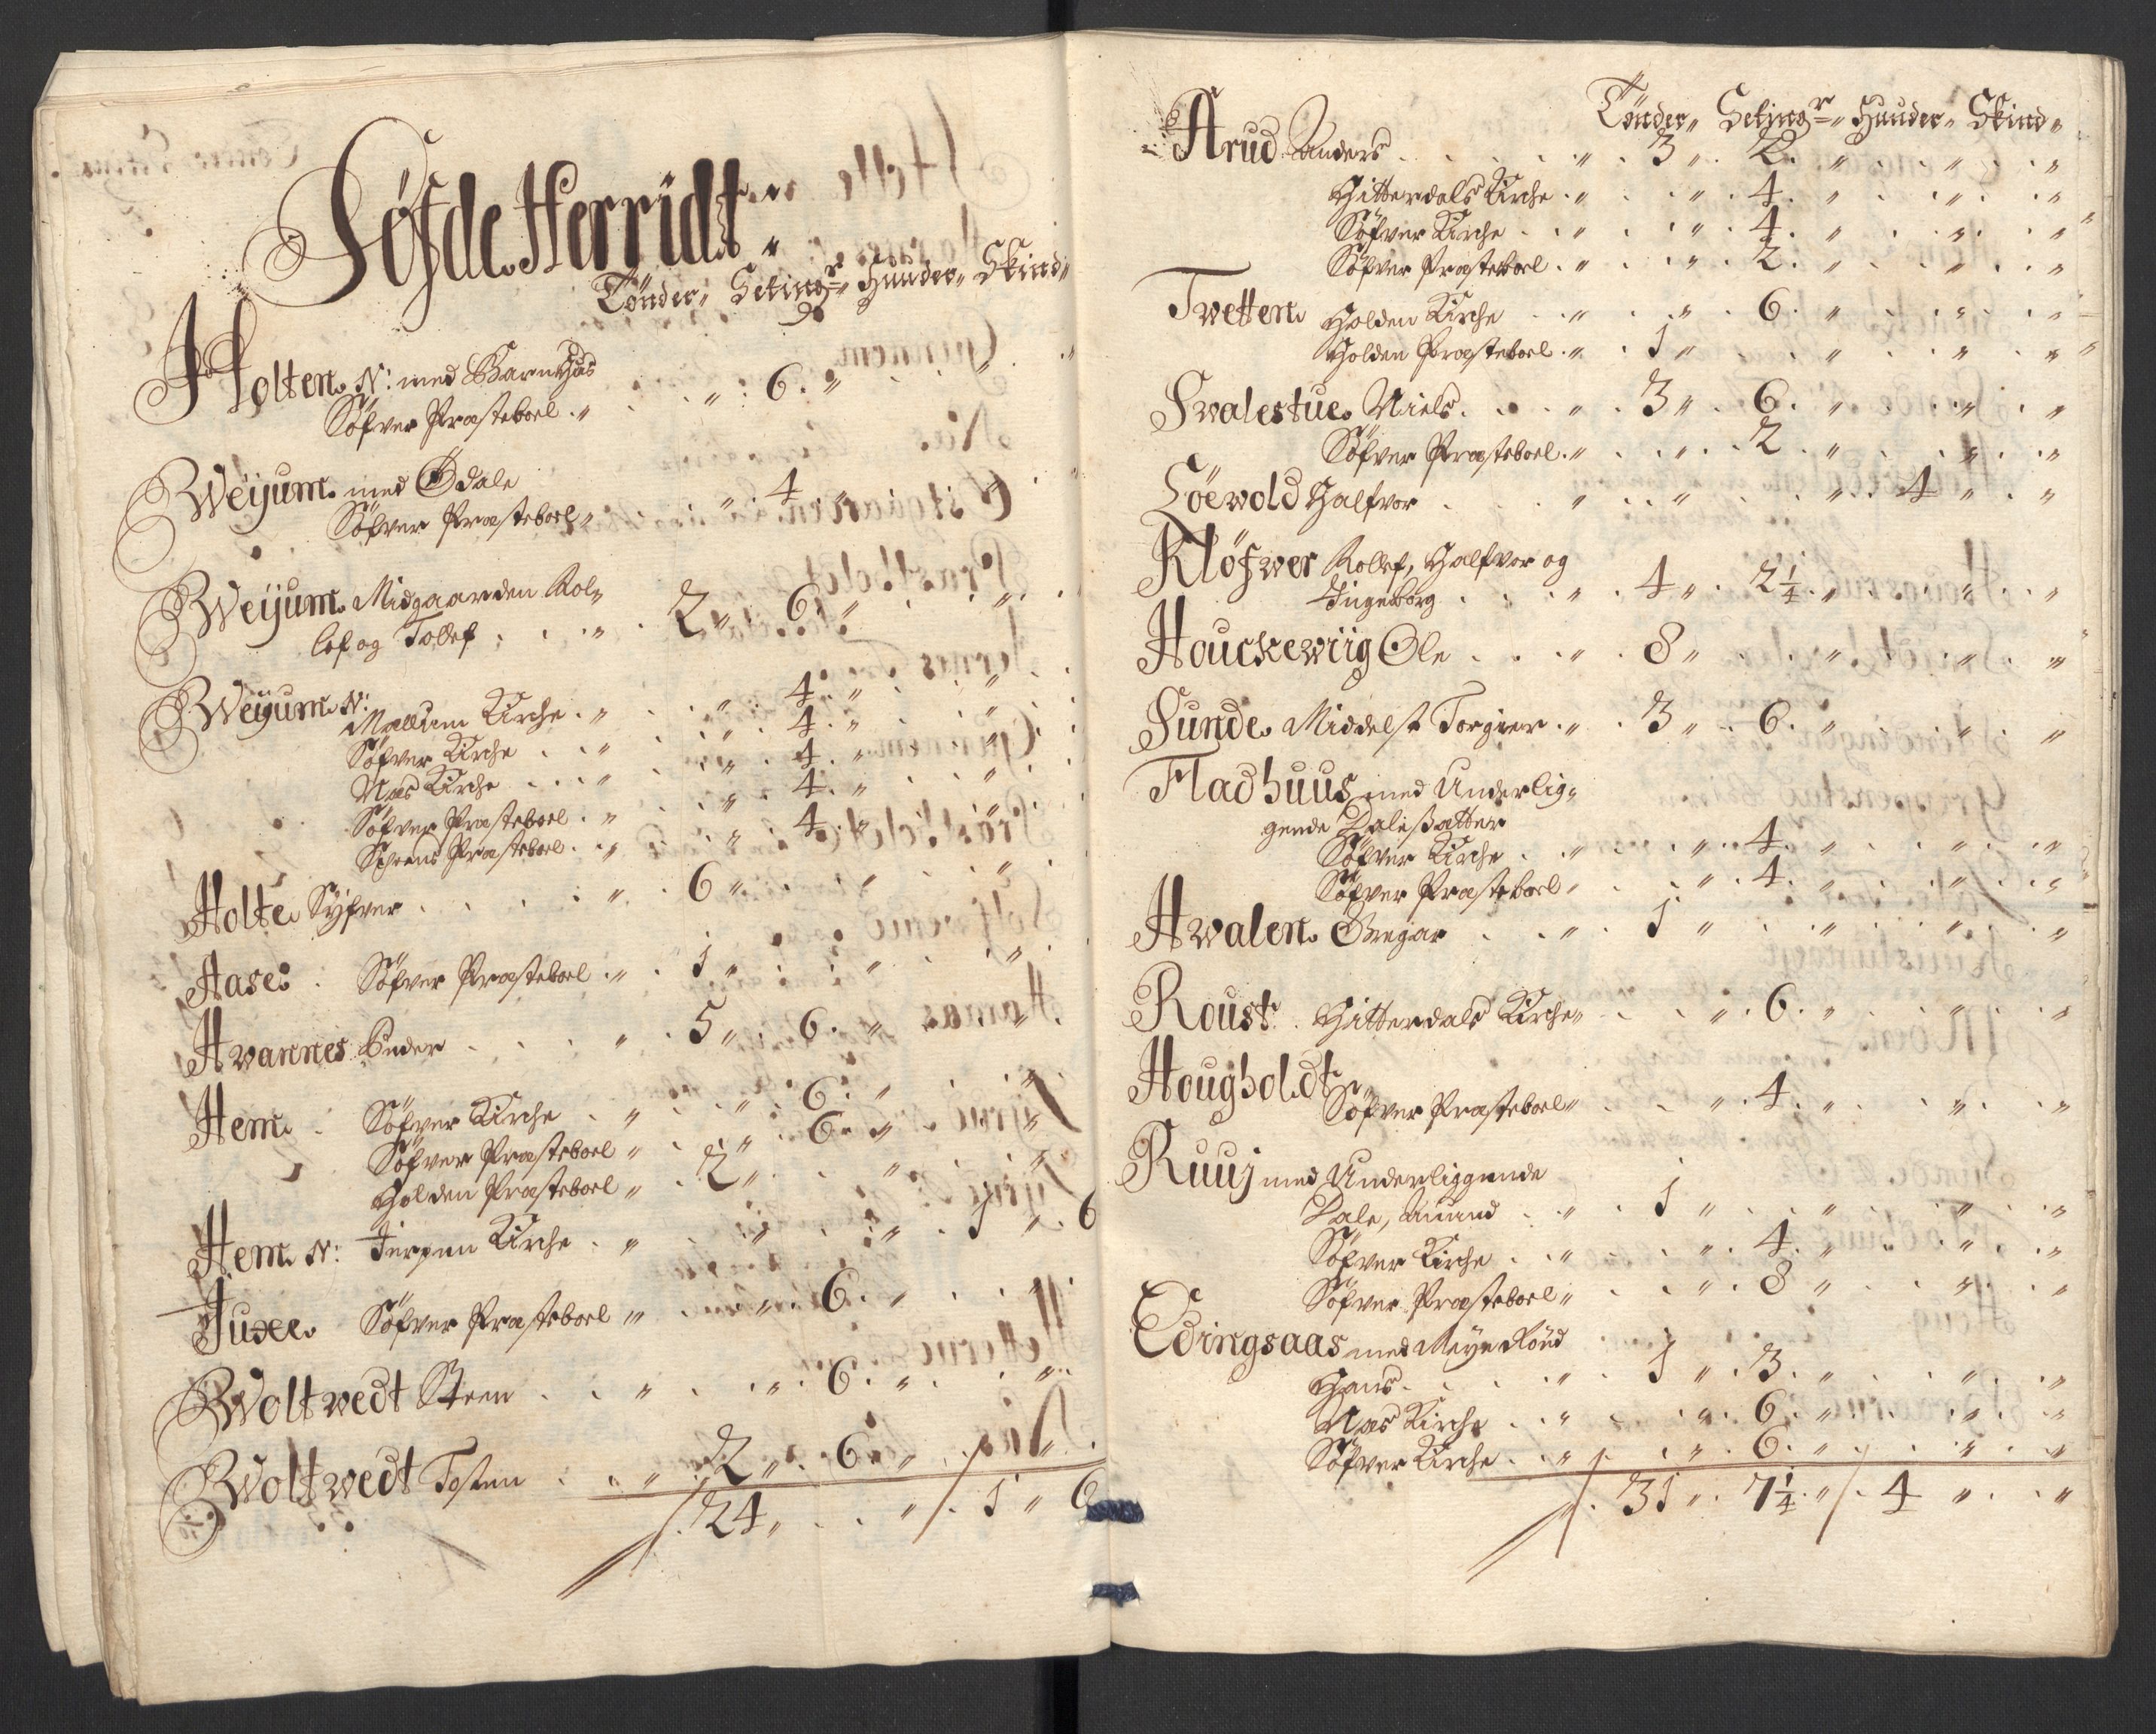 Söfde Herridt
Tönder Setingr Hunder Skind
Holten N: med Barnhus
Söfver Præsteboel 6
Weijum med Ödale
Söfver Præsteboel 4
Weijum Midgaarden Rol-
lef og Tollef 2 6
Weijum N:
Mælum Kirche 4
Söfver Kirche 4
Næs Kirche 4
Söfver Præsteboel 4
Schiens Præsteboel 4
Holte Syfver 6
Aase Söfver Præsteboel 1
Hvannes Peder 5 6
Hem Söfver Kirche 6
Söfver Præsteboel 6
Holden Præsteboel 2
Hem N: Jerpen Kirche 1 6
Juxe Söfver Præsteboel 6
Woltvedt Steen 6
Woltvedt Tosten 2 6
24 1 6
Tönder Setingr Hunder Skind
Arud Anders 3 2
Hitterdals Kirche 4
Söfver Kirche 4
Söfver Præsteboel 2
Twetten Holden Kirche 6
Holden Præsteboel 1
Swalestue Niels 3 6
Söfver Præsteboel 2
Löewold Halfvor 4
Klöfwer Rollef, Halfvor og
Ingeborg 4 2 1/4
Houckewiig Ole 8
Sunde Middelst Torgier 3 6
Fladhuus med Underlig-
gende Dalesætter
Söfver Kirche 4
Söfver Præsteboel 4
Hwalen Gregar 1
Roust Hitterdals Kirche 6
Hougholdt
Söfver Præsteboel 4
Ruuj med Underliggende
Dale, Amund 1
Söfver Kirche 4
Söfver Præsteboel 8
Edingsaas med Meyn Röed
Hans 1 3
Næs Kirche 6
Söfver Kirche 6
31 7 1/4 4